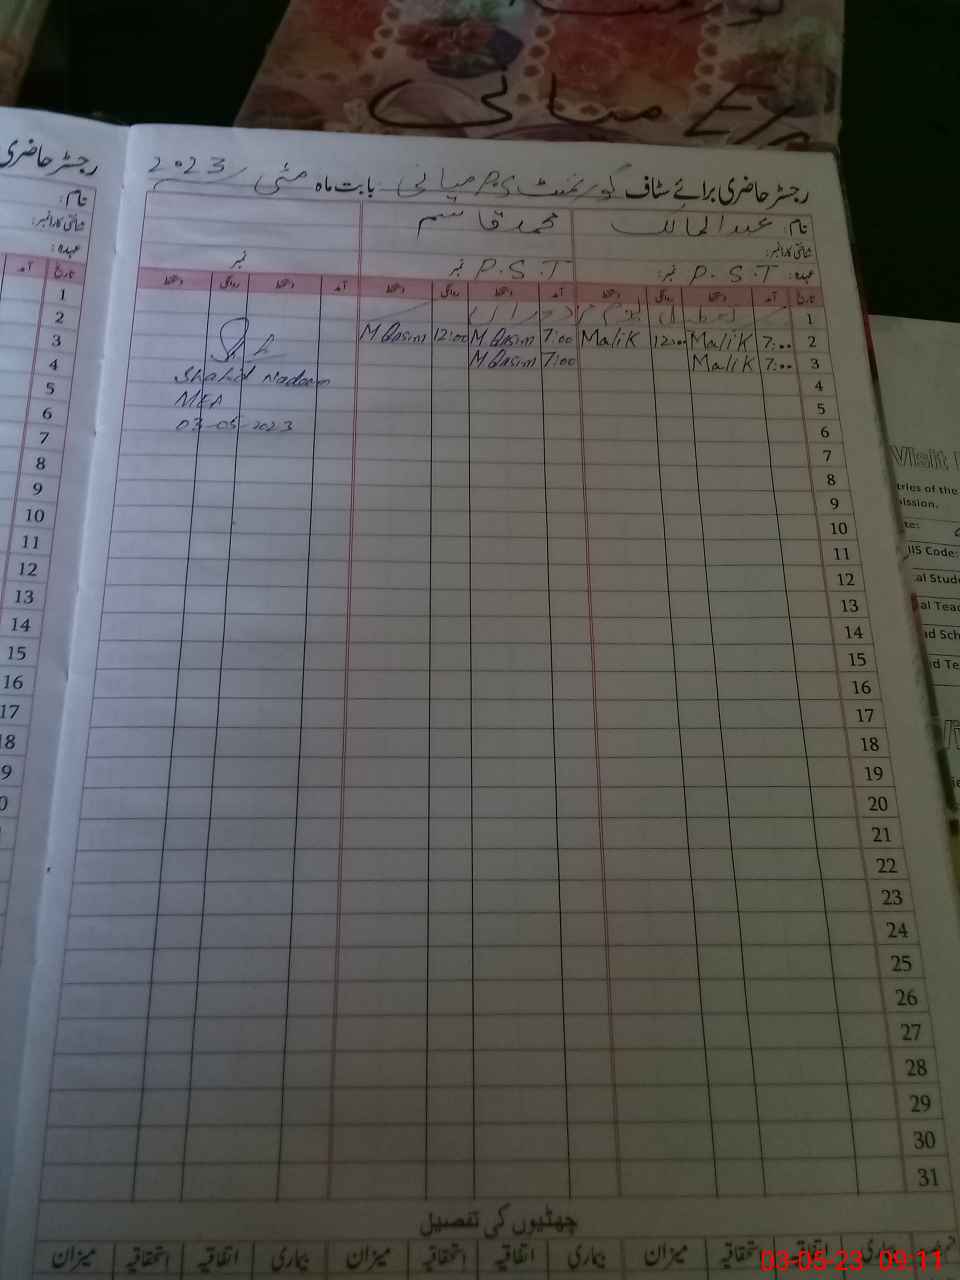 میانی
رجسٹر حاضری برائے سٹاف گورنمنٹ P.S میانی بابت ماہ مئی 2023
نام: عبدالمالک محمد قاسم
شناختی کارڈ نمبر:
عہدہ: P.S.T نمبر: P.S.T نمبر نمبر
تاریخ آمد دستخط روانگی دستخط آمد دستخط روانگی دستخط آمد دستخط روانگی دستخط
1 تعطیل یوم
2 7:00 Malik 12:00 Malik 7:00 M Qasim 12:00 M Qasim
3 7:00 Malik 7:00 M Qasim
4
Shahid Nadeem
5
MEA
6
03-05-2023
7
8
9
10
11
12
13
14
15
16
17
18
19
20
21
22
23
24
25
26
27
28
29
30
31
چھٹیوں کی تفصیل
بیماری اتفاقیہ استحقاقیہ میزان بیماری اتفاقیہ استحقاقیہ میزان بیماری اتفاقیہ استحقاقیہ میزان
رجسٹر حاضری
نام:
شناختی کارڈ نمبر:
عہدہ:
تاریخ آمد
1
2
3
4
5
6
7
8
9
10
11
12
13
14
15
16
17
18
Visit
tries of the
ission.
IIS Code:
al Stud
al Tea
d Sch
d Te
03-05-23 09:11